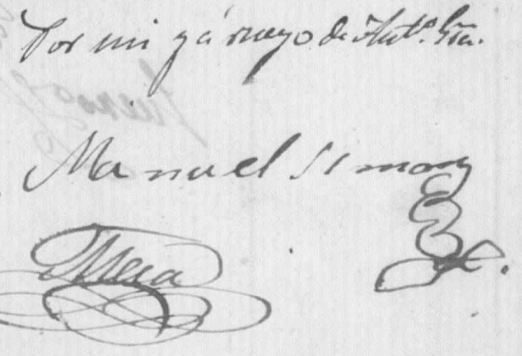 Por mi y á ruego de Ant.º Gra.
Manuel Simon
Mera